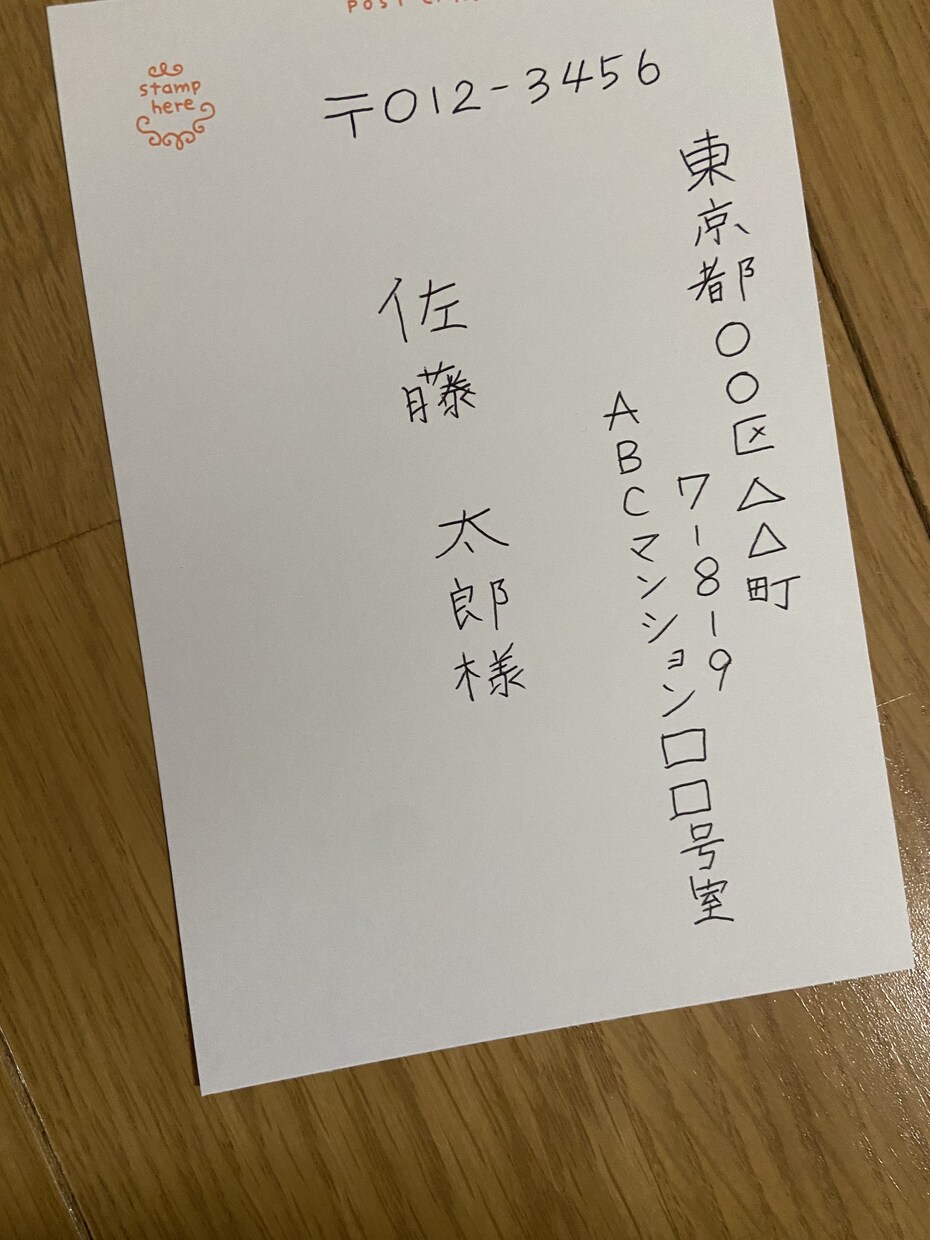 stamp
here
〒012-3456
東京都○○区△△町
7-8-9
ABCマンション□□号室
佐藤 太郎様